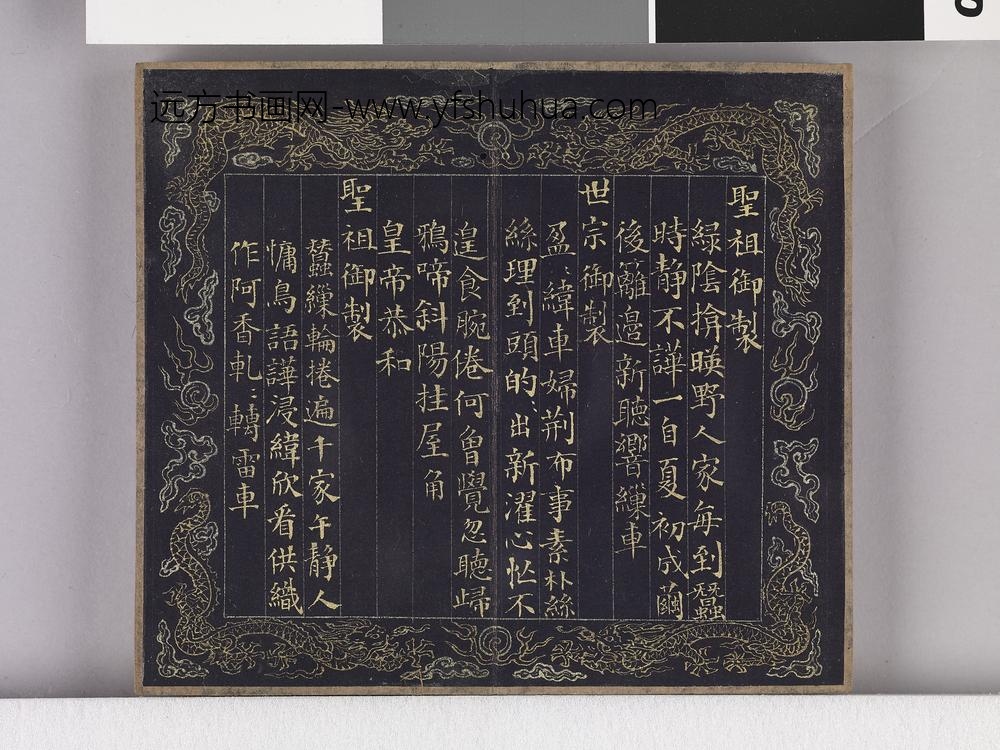 远方书画网-www.yfshuhua.com
聖祖御製
緑陰揜暎野人家每到蠶
時静不譁一自夏初成繭
後籬邉新聴響繅車
世宗御製
盈〻緯車婦荆布事素朴絲
絲理到頭的〻出新濯心忙不
遑食腕倦何曾覺忽聴歸
鴉啼斜陽挂屋角
皇帝恭和
聖祖御製
蠶繅輪捲遍千家午静人
慵鳥語譁浸緯欣看供織
作阿香軋〻轉雷車